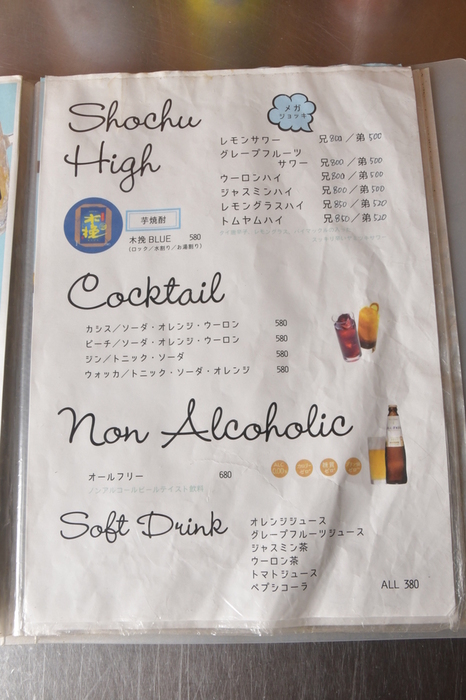 Shochu
High
メガ
ジョッキ
レモンサワー 兄800／弟500
グレープフルーツ
サワー 兄800／弟500
ウーロンハイ 兄800／弟500
ジャスミンハイ 兄800／弟500
レモングラスハイ 兄850／弟520
トムヤムハイ 兄850／弟520
木挽
芋焼酎
木挽BLUE 580
(ロック／水割り／お湯割り)
Cocktail
カシス／ソーダ・オレンジ・ウーロン 580
ピーチ／ソーダ・オレンジ・ウーロン 580
ジン／トニック・ソーダ 580
ウォッカ／トニック・ソーダ・オレンジ 580
Non Alcoholic
オールフリー 680
ノンアルコールビールテイスト飲料
Soft Drink
オレンジジュース
グレープフルーツジュース
ジャスミン茶
ウーロン茶
トマトジュース
ペプシコーラ
ALL 380